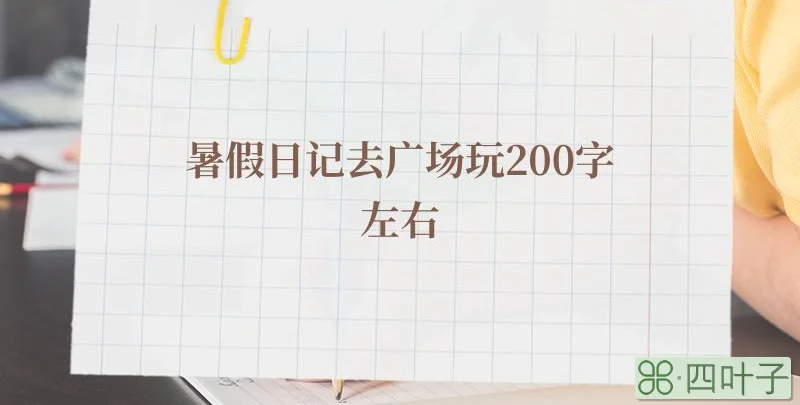 暑假日记去广场玩200字
左右
四叶子